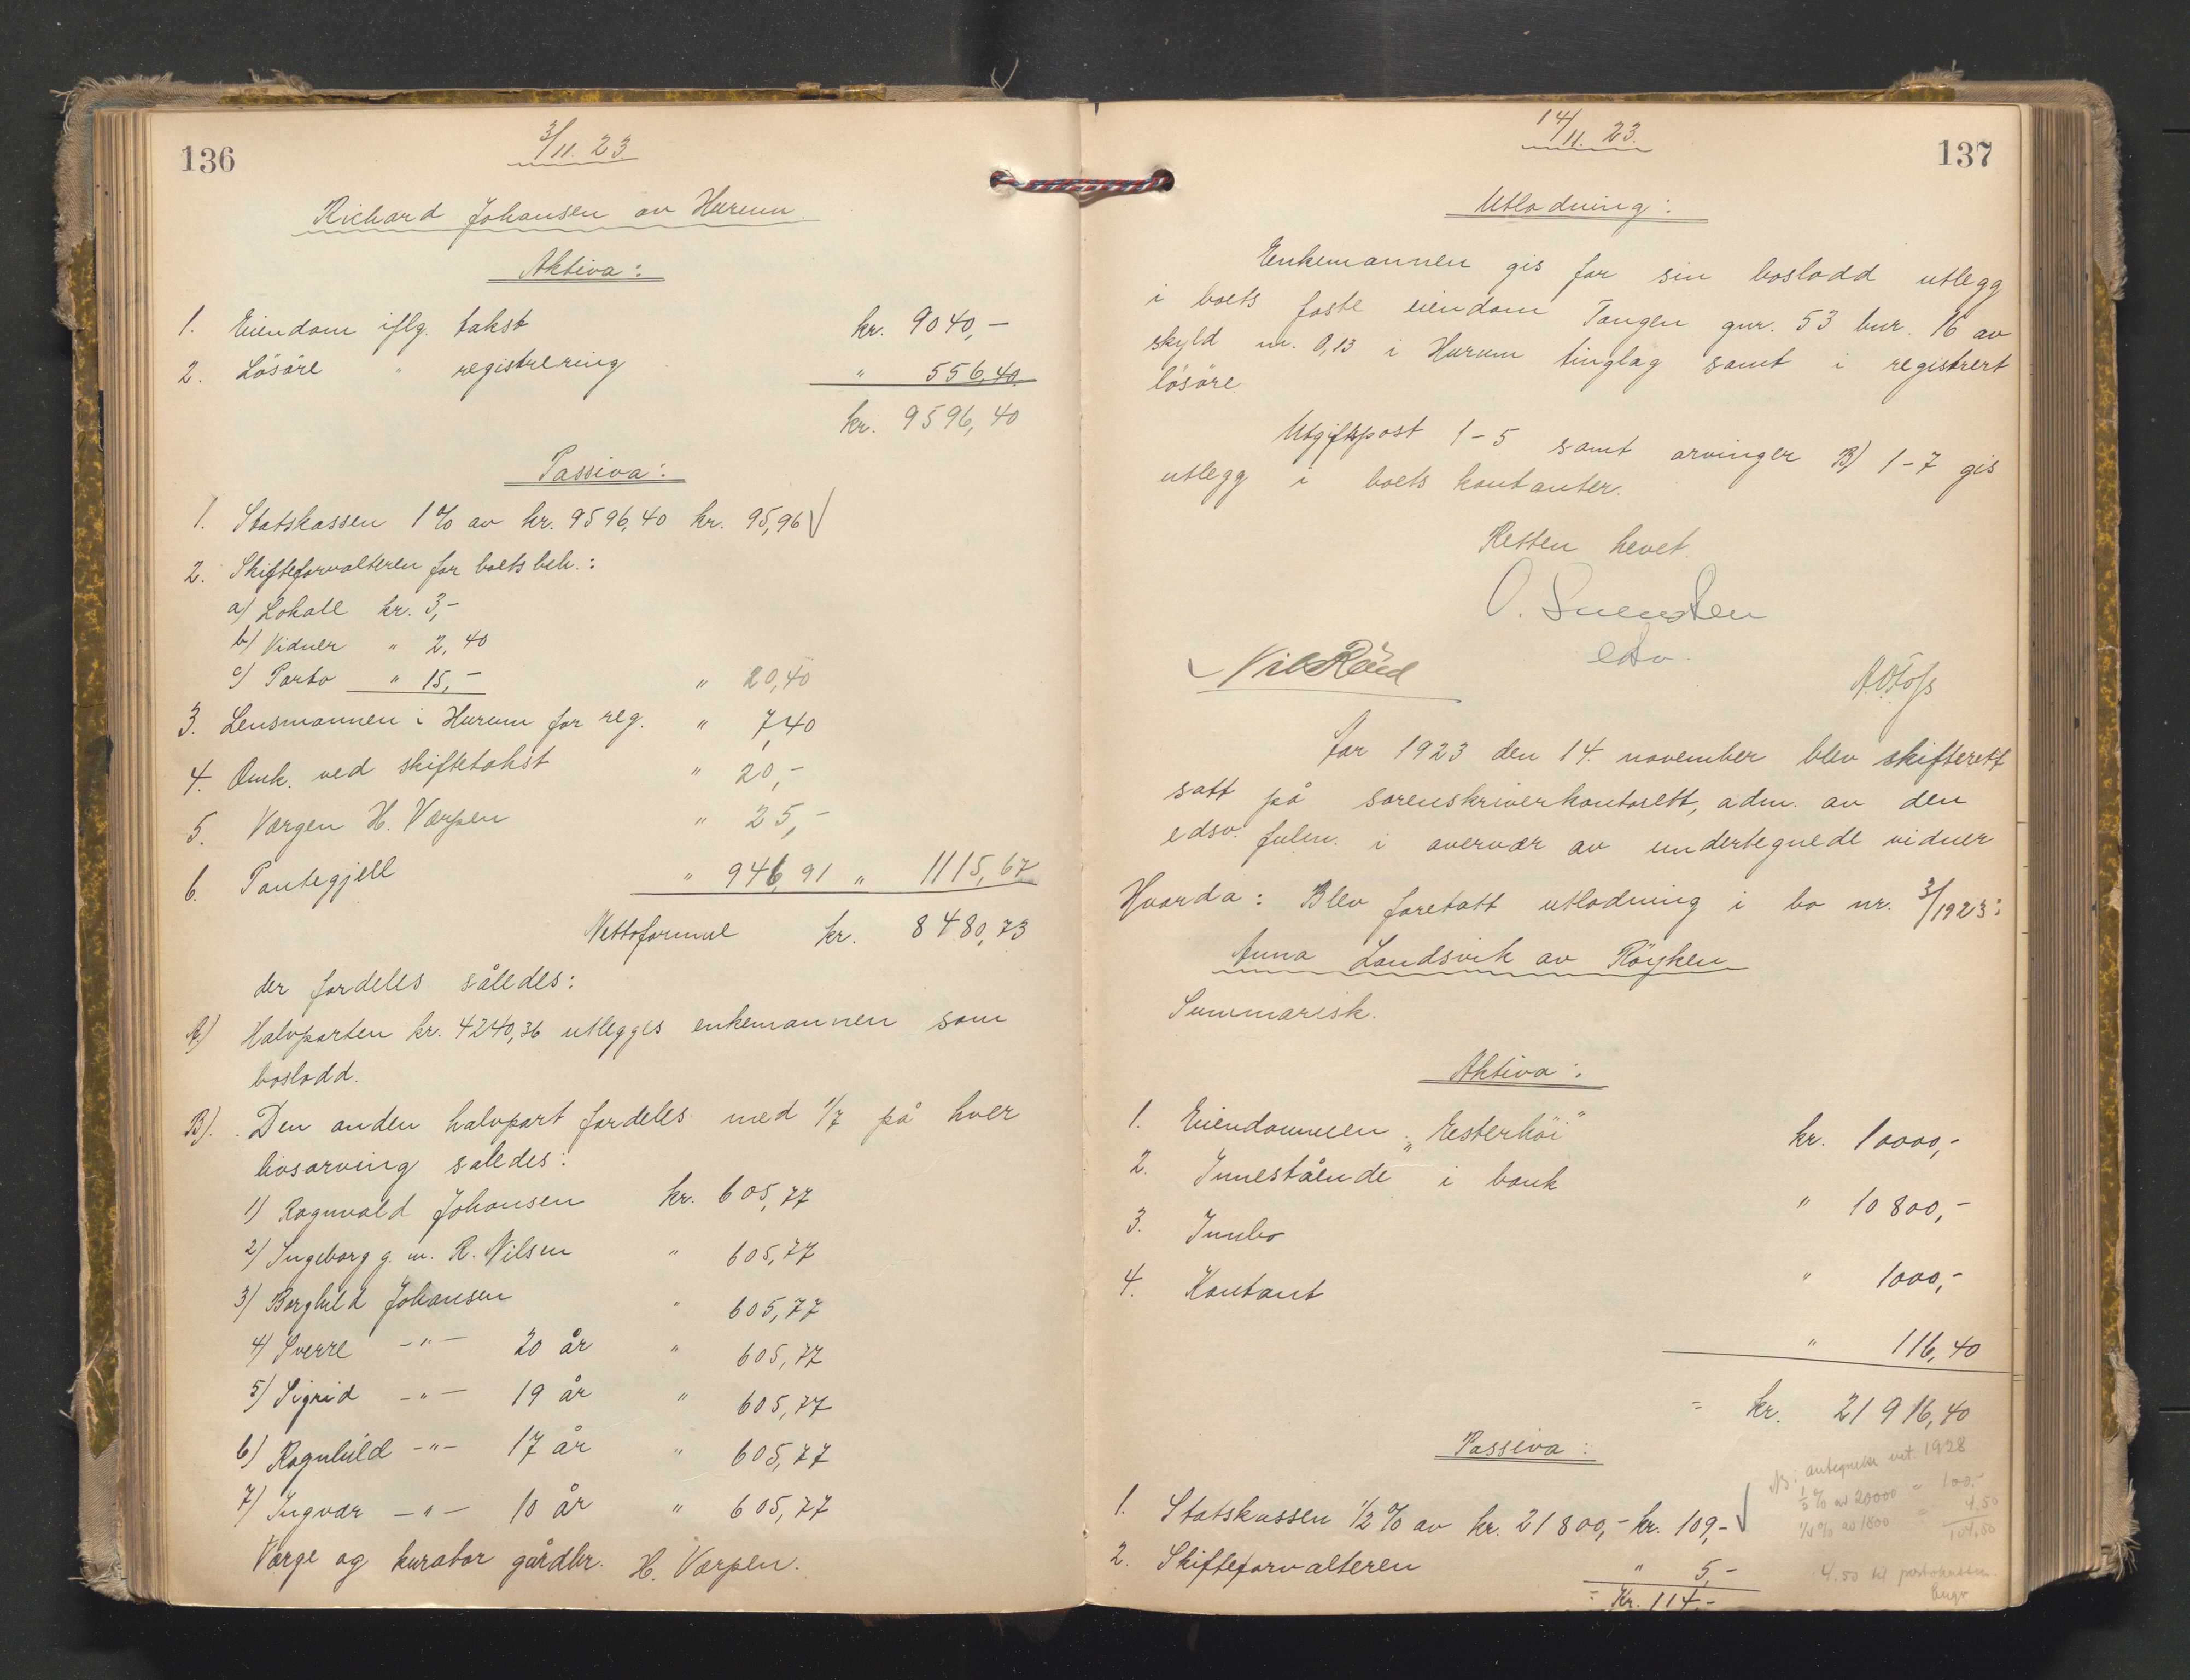 136
3/11. 23
Richard Johansen av Hurum.
Aktiva:
1. Eiendom iflg. takst kr. 9040,-
2. Lösöre " registrering " 556,40
kr. 9596,40
Passiva:
1. Statskassen 1% av kr. 9596,40 kr. 95,96
2. Skifteforvalteren for boets beh.:
a) Lokale kr. 3,-
b) Vidner " 2,40
c) Porto " 15,- " 20,40
3. Lensmannen i Hurum for reg. " 7,40
4. Omk. ved skiftetakst " 20,-
5. Vergen H. Verpen " 25,-
6. Pantegjeld " 946,91 " 1115,67
Nettoformue kr. 8480,73
der fordeles således:
A) Halvparten kr. 4240,36 utlegges enkemannen som
boslodd.
B). Den anden halvpart fordeles med 1/7 på hver
livsarving således:
1) Ragnvald Johansen kr. 605,77
2) Ingeborg g. m. R. Nilsen " 605,77
3) Borghild Johansen " 605,77
4) Sverre -"- 20 år " 605,77
5) Sigrid -"- 19 år " 605,77
6) Ragnhild -"- 17 år " 605,77
7) Ingvar -"- 10 år " 605,77
Verge og kurator gårdbr. H. Verpen.
14/11. 23.
137
Utlodning:
Enkemannen gis for sin boslodd utlegg
i boets faste eiendom Tangen gnr. 53 bnr. 16 av
skyld m. 0,13 i Hurum tinglag samt i registrert
lösöre.
Utgiftspost 1-5 samt arvinger B) 1-7 gis
utlegg i boets kontanter.
Retten hevet.
O. Svendsen
edsv.
Nils Röed
A. O. Foss
Aar 1923 den 14. november blev skifterett
satt på sorenskriverkontorett, adm. av den
edsv. fulm. i overvær av undertegnede vidner
Hvorda: Blev foretatt utlodning i bo nr. 3/1923:
Anna Landsvik av Röyken
Summarisk.
Aktiva:
1. Eiendommen "Esterhöi" kr. 10000,-
2. Innestående i bank " 10800,-
3. Innbo " 1000,-
4. Kontant " 116,40
= kr. 21916,40
Passiva:
1. Statskassen 1/2% av kr. 21800,- kr. 109,-
2. Skifteforvalteren " 5,-
= Kr. 114,-
NB: antegnelse vet. 1928
1/5% av 20000 = 100,-
1/4% av 1800 = 4.50
104,50
4.50 til portokassen.